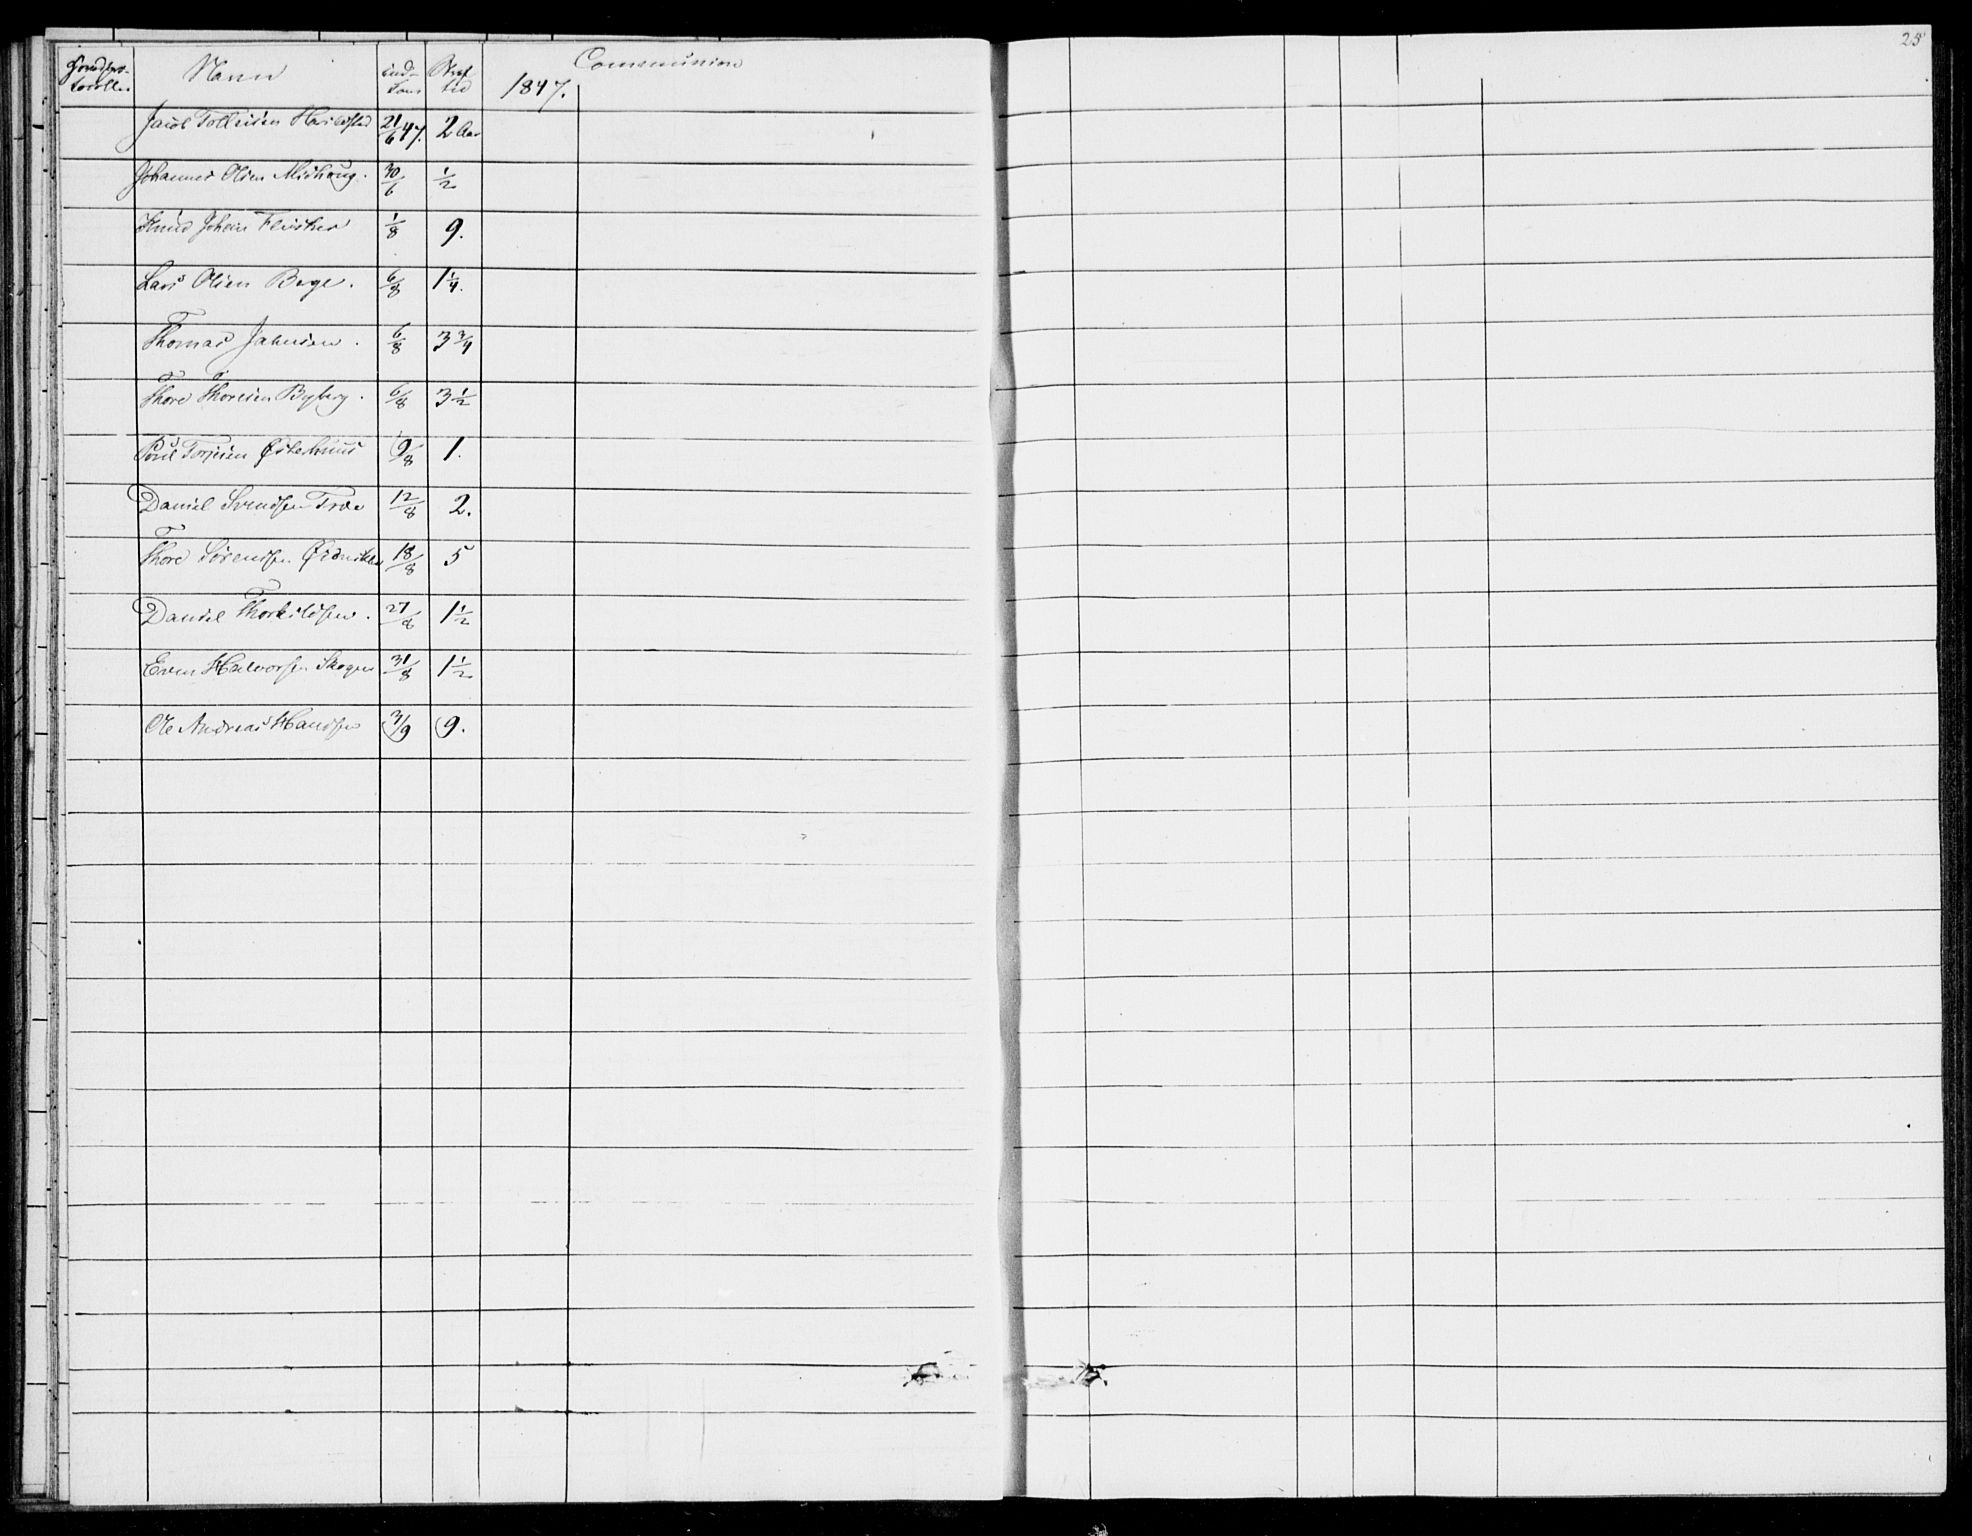 25
Navn ind- Straf Communion
kom tid 1847.
Jacob Tolleisen 21/6 47. 2 Aar
Johannes Olsen Midhoug. 30/6 1/2
Knud 1/8 9.
Lars Olsen Berge. 6/8 1 1/4.
Thomas Jahnsen. 6/8 3 3/4
Thore Thoresen Byberg. 6/8 3 1/2
Poul Torjesen Østerhuus 9/8 1.
Daniel Svendsen Troe 12/8 2.
Thore Sørensen 18/8 5
Daniel Thorkildsen. 27/8 1 1/2
Even Halvorsen Skogen 31/8 1 1/2
Ole Andreas Handsen 3/9 9.